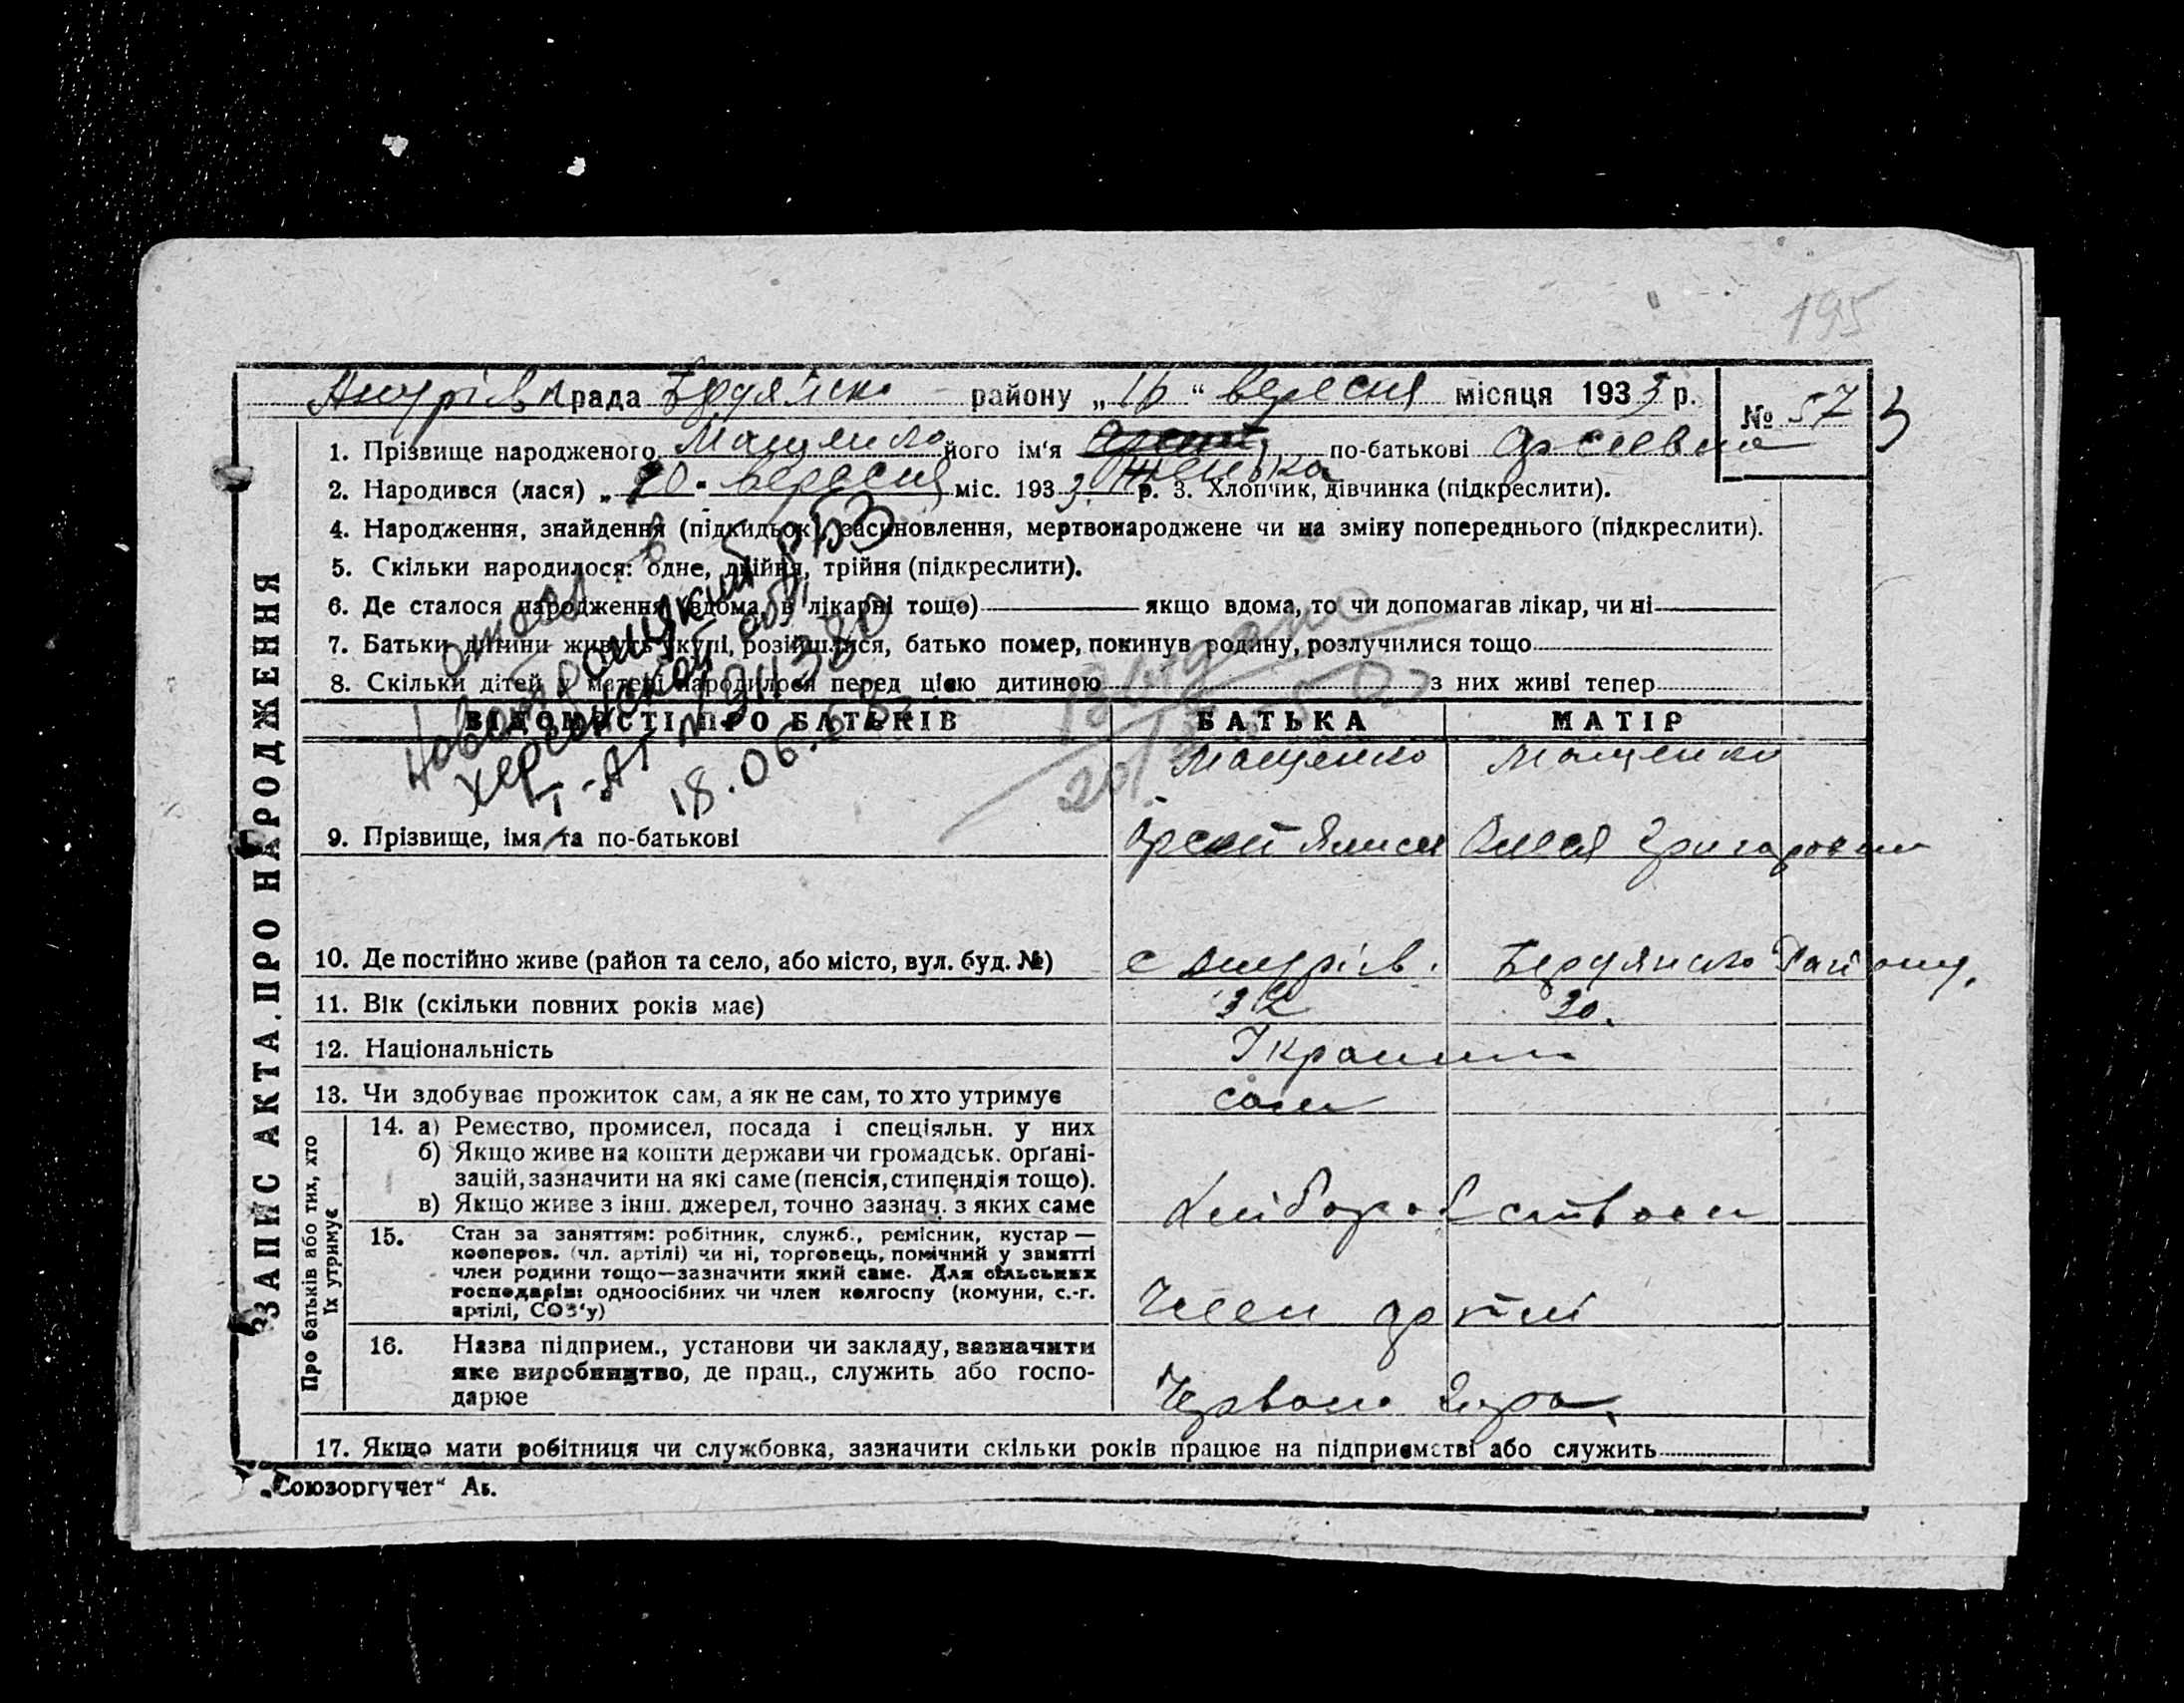 195
рада Бердянсько району „16“ вересня місяця 1933 р. № 57
3
1. Прізвище народженого Мащенко його ім‘я Женька по-батькові Арсиевна
2. Народився (лася) „10“ вересня міс. 1933 р. 3. Хлопчик, дівчинка (підкреслити).
4. Народження, знайдення (підкидьок), засиновлення, мертвонароджене чи на зміну попереднього (підкреслити).
5. Скільки народилося: одне, двійня, трійня (підкреслити).
6. Де сталося народження (вдома, в лікарні тощо) якщо вдома, то чи допомагав лікар, чи ні
7. Батьки дитини живуть вкупі, розійшлися, батько помер, покинув родину, розлучилися тощо
8. Скільки дітей у матері народилося перед цією дитиною з них живі тепер
Херсонской обл
18.06.
Видано
ВІДОМОСТІ ПРО БАТЬКІВ БАТЬКА МАТІР
Мащенко Мащенко
9. Прізвище, імя та по-батькові Арсей Олеся Григоровна
10. Де постійно живе (район та село, або місто, вул. буд. №) с Бердянсько Району.
11. Вік (скільки повних років має) 32 30.
12. Національність
13. Чи здобуває прожиток сам, а як не сам, то хто утримує сам
14. а) Ремество, промисел, посада і спеціяльн. у них
б) Якщо живе на кошти держави чи громадськ. орґані-
зацій, зазначити на які саме (пенсія, стипендія тощо).
в) Якщо живе з інш. джерел, точно зазнач. з яких саме Хліборобством
15. Стан за заняттям: робітник, служб., ремісник, кустар —
кооперов. (чл. артілі) чи ні, торговець, помічний у занятті
член родини тощо—зазначити який саме. Для сільських
господарів: одноосібних чи член колгоспу (комуни, с.-г.
артілі, СОЗ‘у) Член артілі
16. Назва підприєм., установи чи закладу, зазначити
яке виробництво, де прац., служить або госпо-
дарює Червона Зиря.
17. Якщо мати робітниця чи службовка, зазначити скільки років працює на підприємстві або служить
ЗАПИС АКТА ПРО НАРОДЖЕННЯ
Про батьків або тих, хто
їх утримує
„Союзоргучет“ Ав.